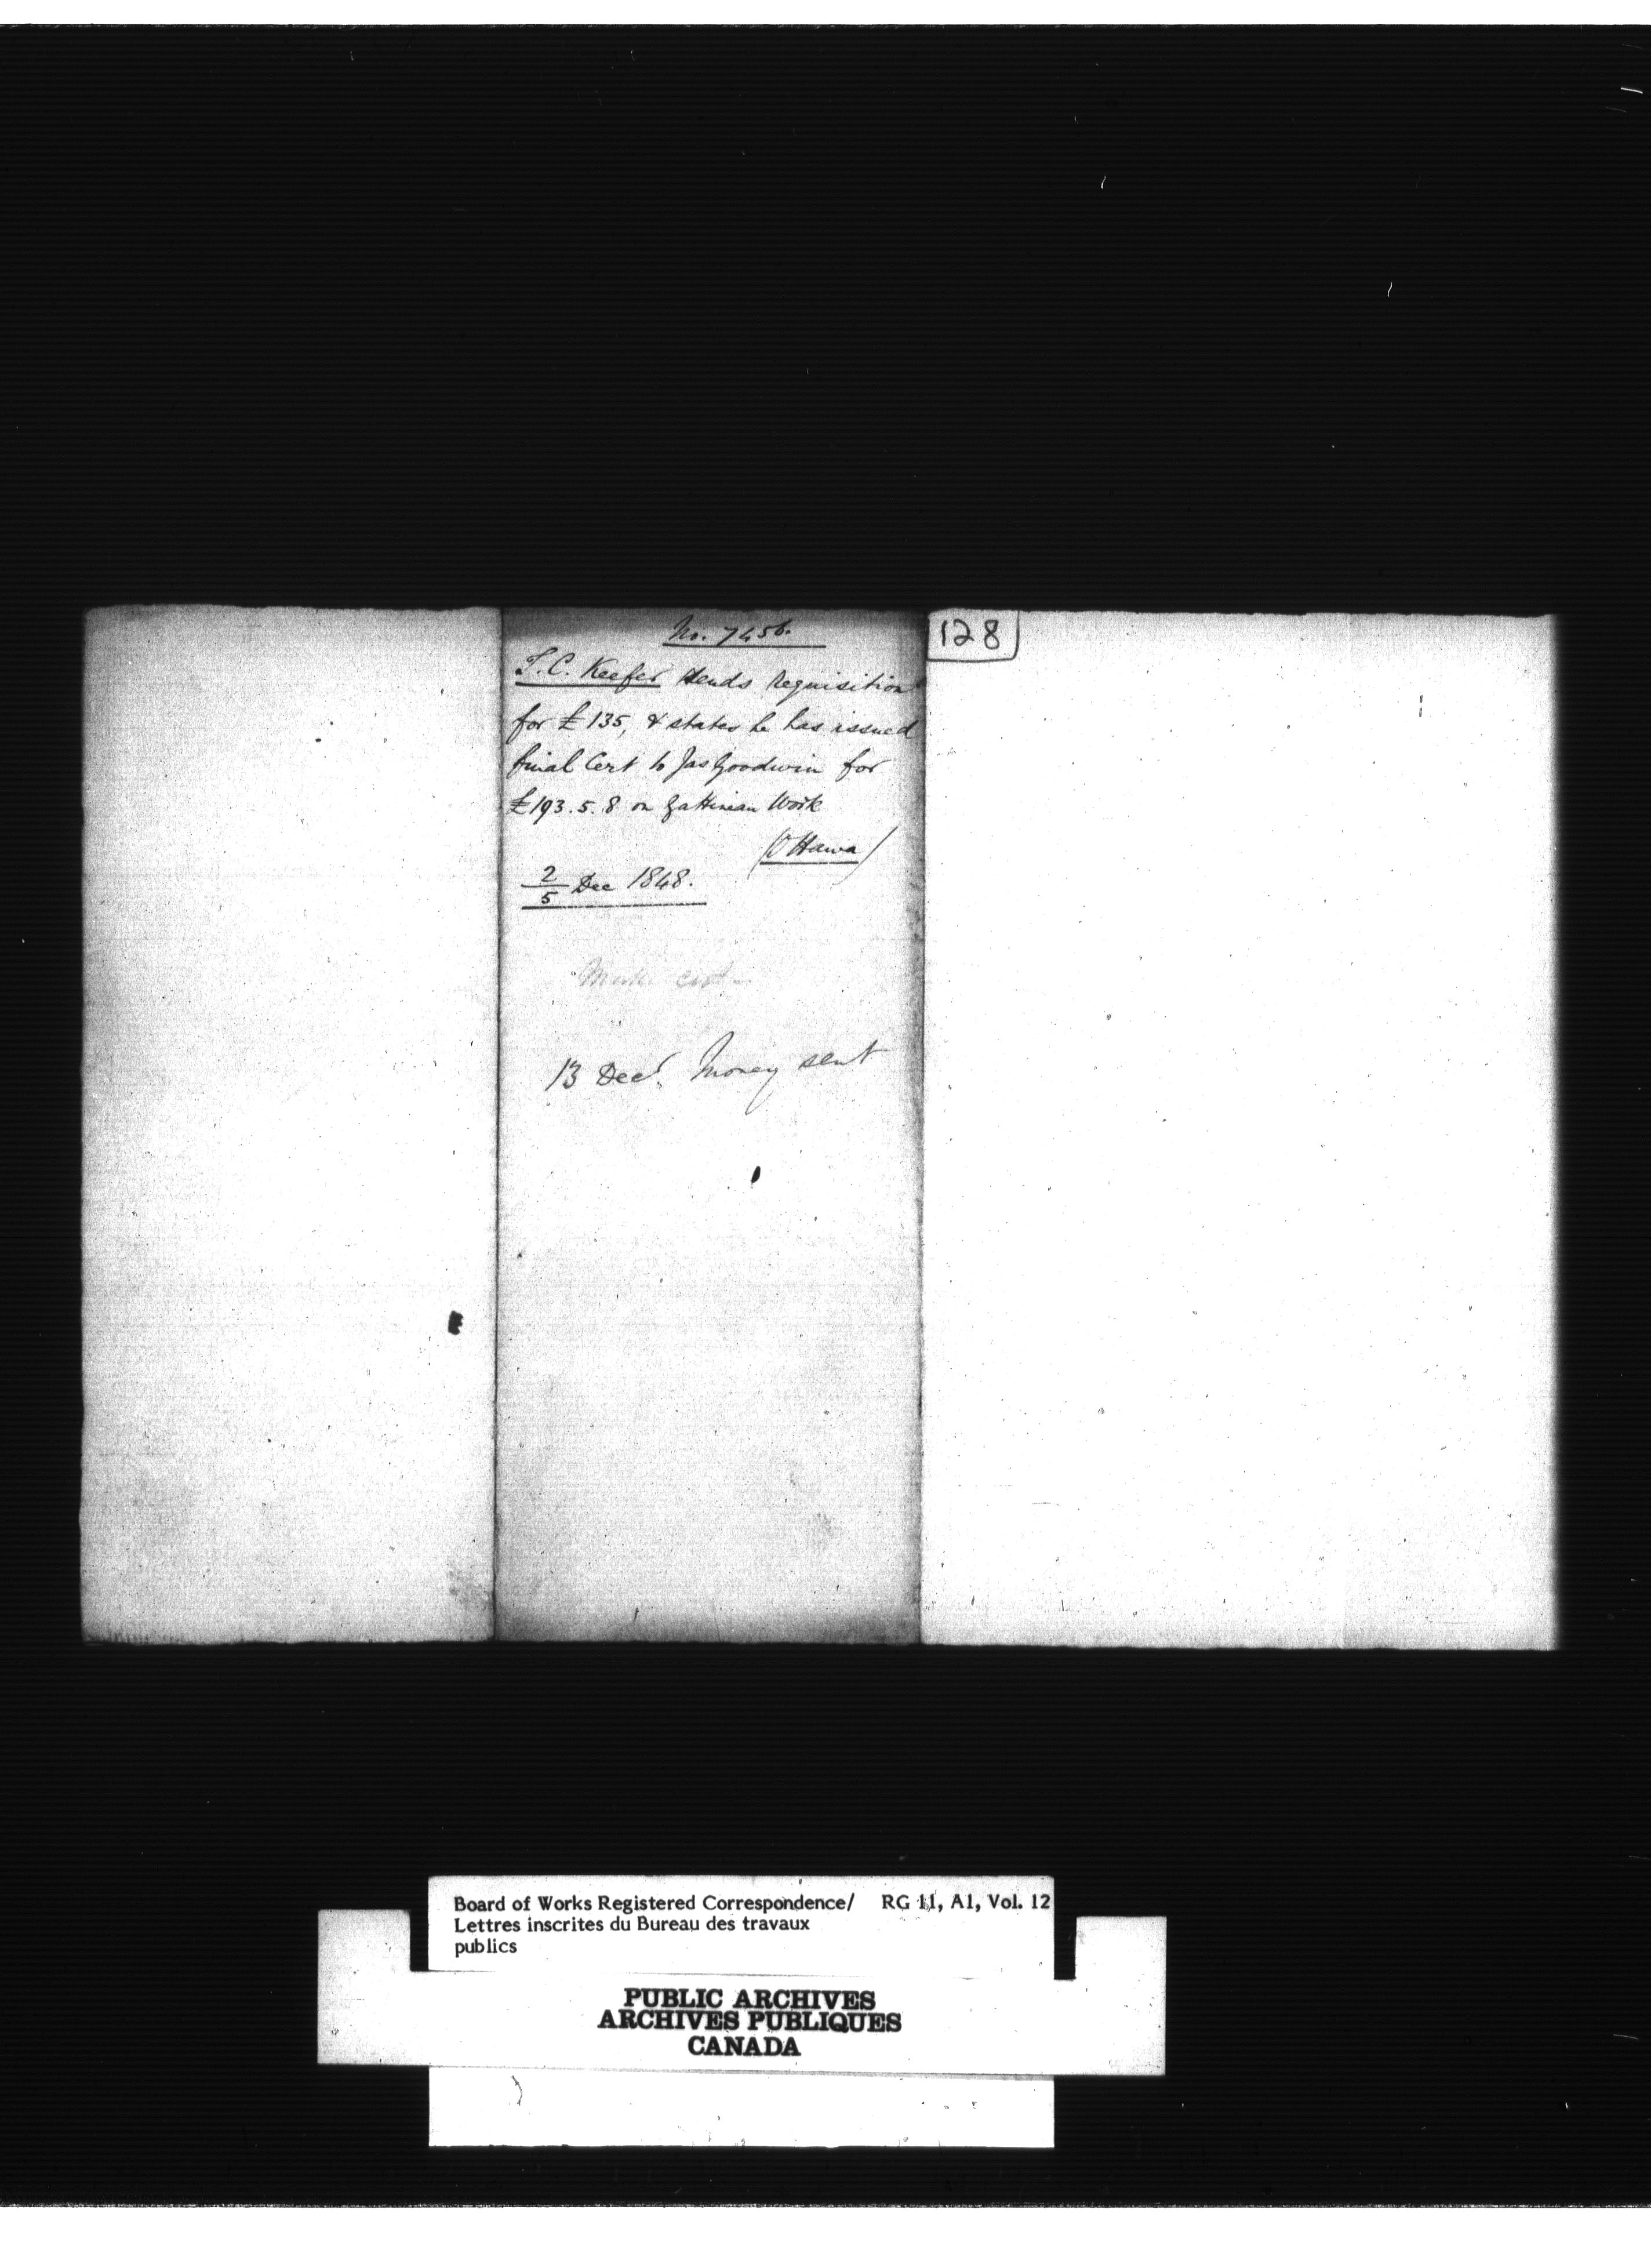 No. 7456.
T.C. Keefer sends requisition
for £135, & states he has issued
final Cert to Jas Goodwin for
£193.5.8 on Gattineau Work
(Ottawa)
2/5 Dec 1848.
13 Decr. Money sent
128
Board of Works Registered Correspondence/ RG 11, A1, Vol. 12
Lettres inscrites du Bureau des travaux
publics
PUBLIC ARCHIVES
ARCHIVES PUBLIQUES
CANADA